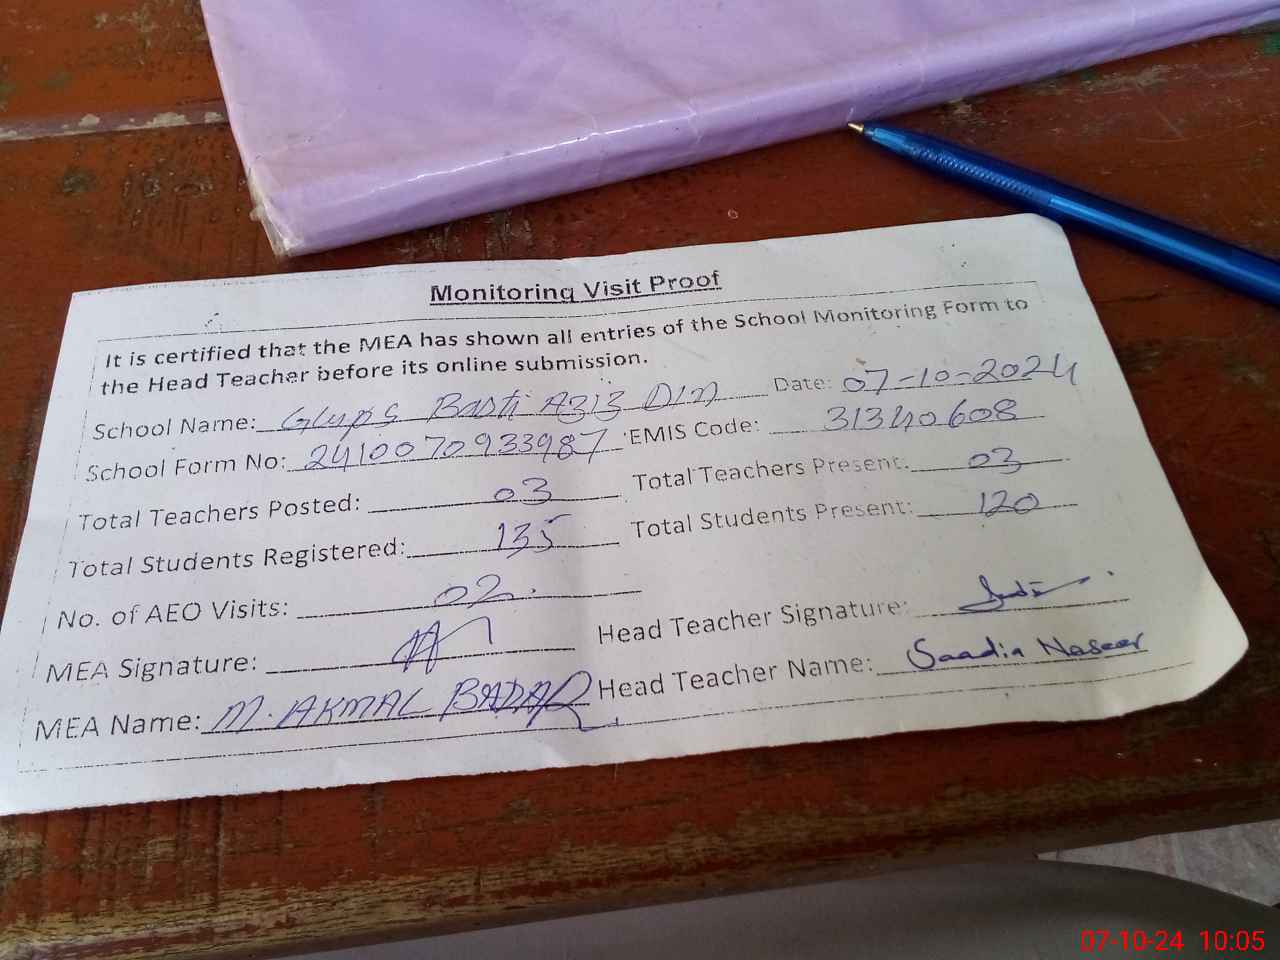 Monitoring Visit Proof
It is certified that the MEA has shown all entries of the School Monitoring Form to
the Head Teacher before its online submission.
School Name: GGLPS Basti Aziz Din Date: 07-10-2024
School Form No: 2410070933987 EMIS Code: 31340608
Total Teachers Posted: 03 Total Teachers Present: 03
Total Students Registered: 135 Total Students Present: 120
No. of AEO Visits: 02.
MEA Signature: Head Teacher Signature:
MEA Name: M. AKMAL BADAR Head Teacher Name: Saadia Naseer
07-10-24 10:05